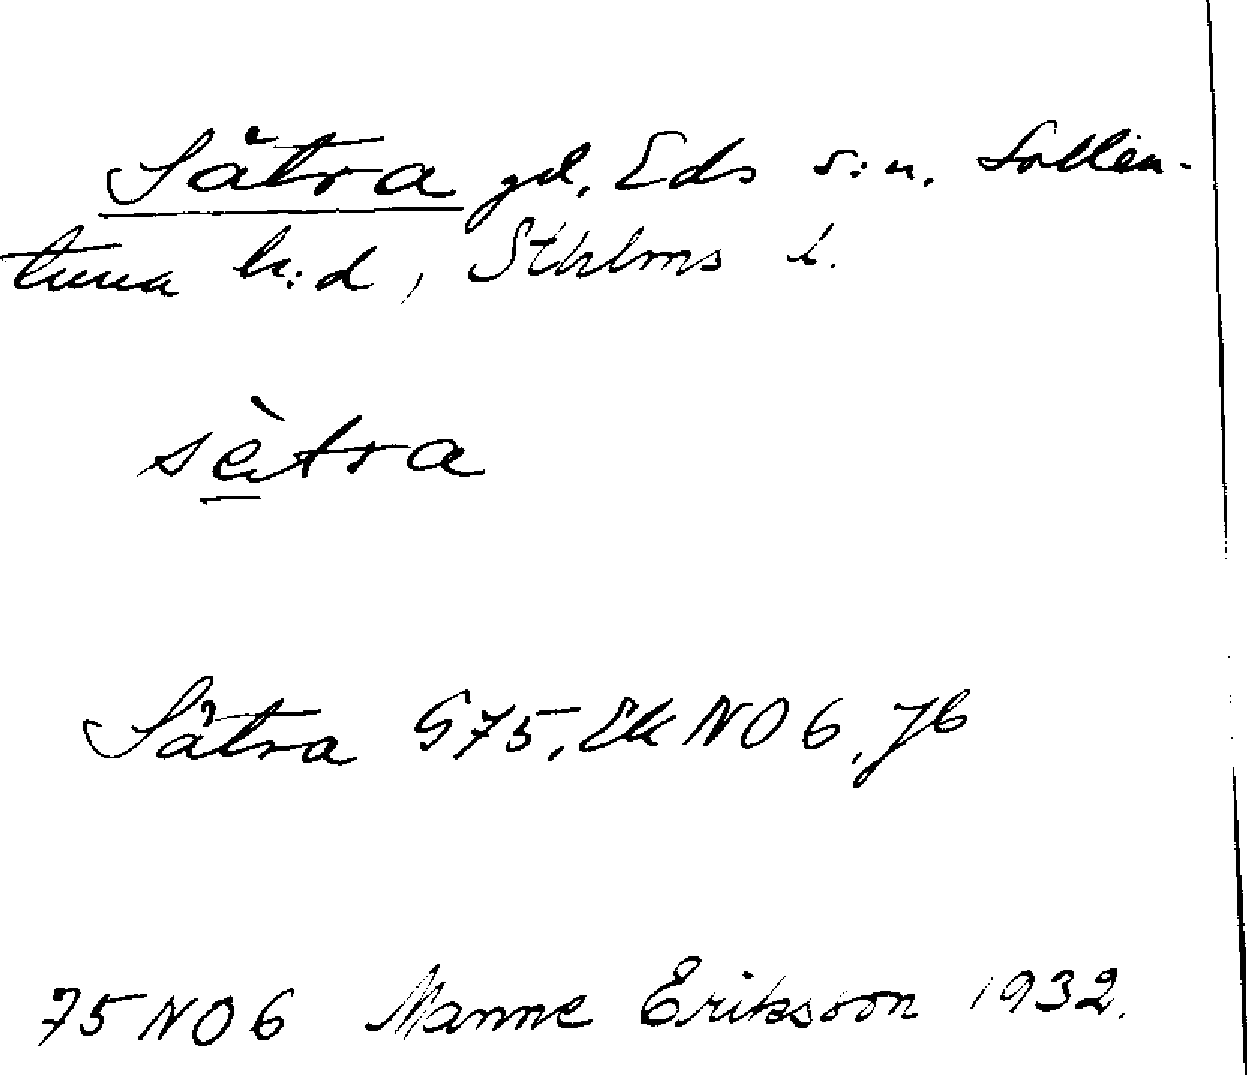 Sätra gd, Eds s:n, Sollen-
tuna h:d, Sthlms l.
sètra
Sätra G75, Ek NO 6, Jb
75 NO 6 Manne Eriksson 1932.